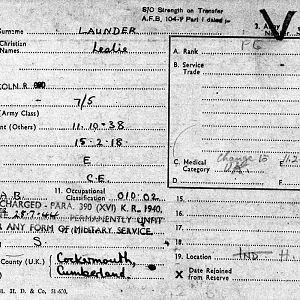 S/O Strength on Transfer
A.F.B. 104-7 Part I dated
V
Surname LAUNDER
3. Army
Christian Names Leslie
A. Rank PG
B. Service
Trade
COLN. R.
7/5
(Army Class)
(Others) 11.10-38
15-2-18
E
C.E.
C. Medical
Category change to
D.
F.
11. Occupational
Classification 010 02
CHARGED - PARA. 390 (XVI) K. R., 1940,
28.7.44 PERMANENTLY UNFIT
ANY FORM OF MILITARY SERVICE.
S
County (U.K.) Cockermouth,
Cumberland.
15.
16.
17.
18.
19. Location IND H
X Date Rejoined
from Reserve
H. D. & Co. 51-600.